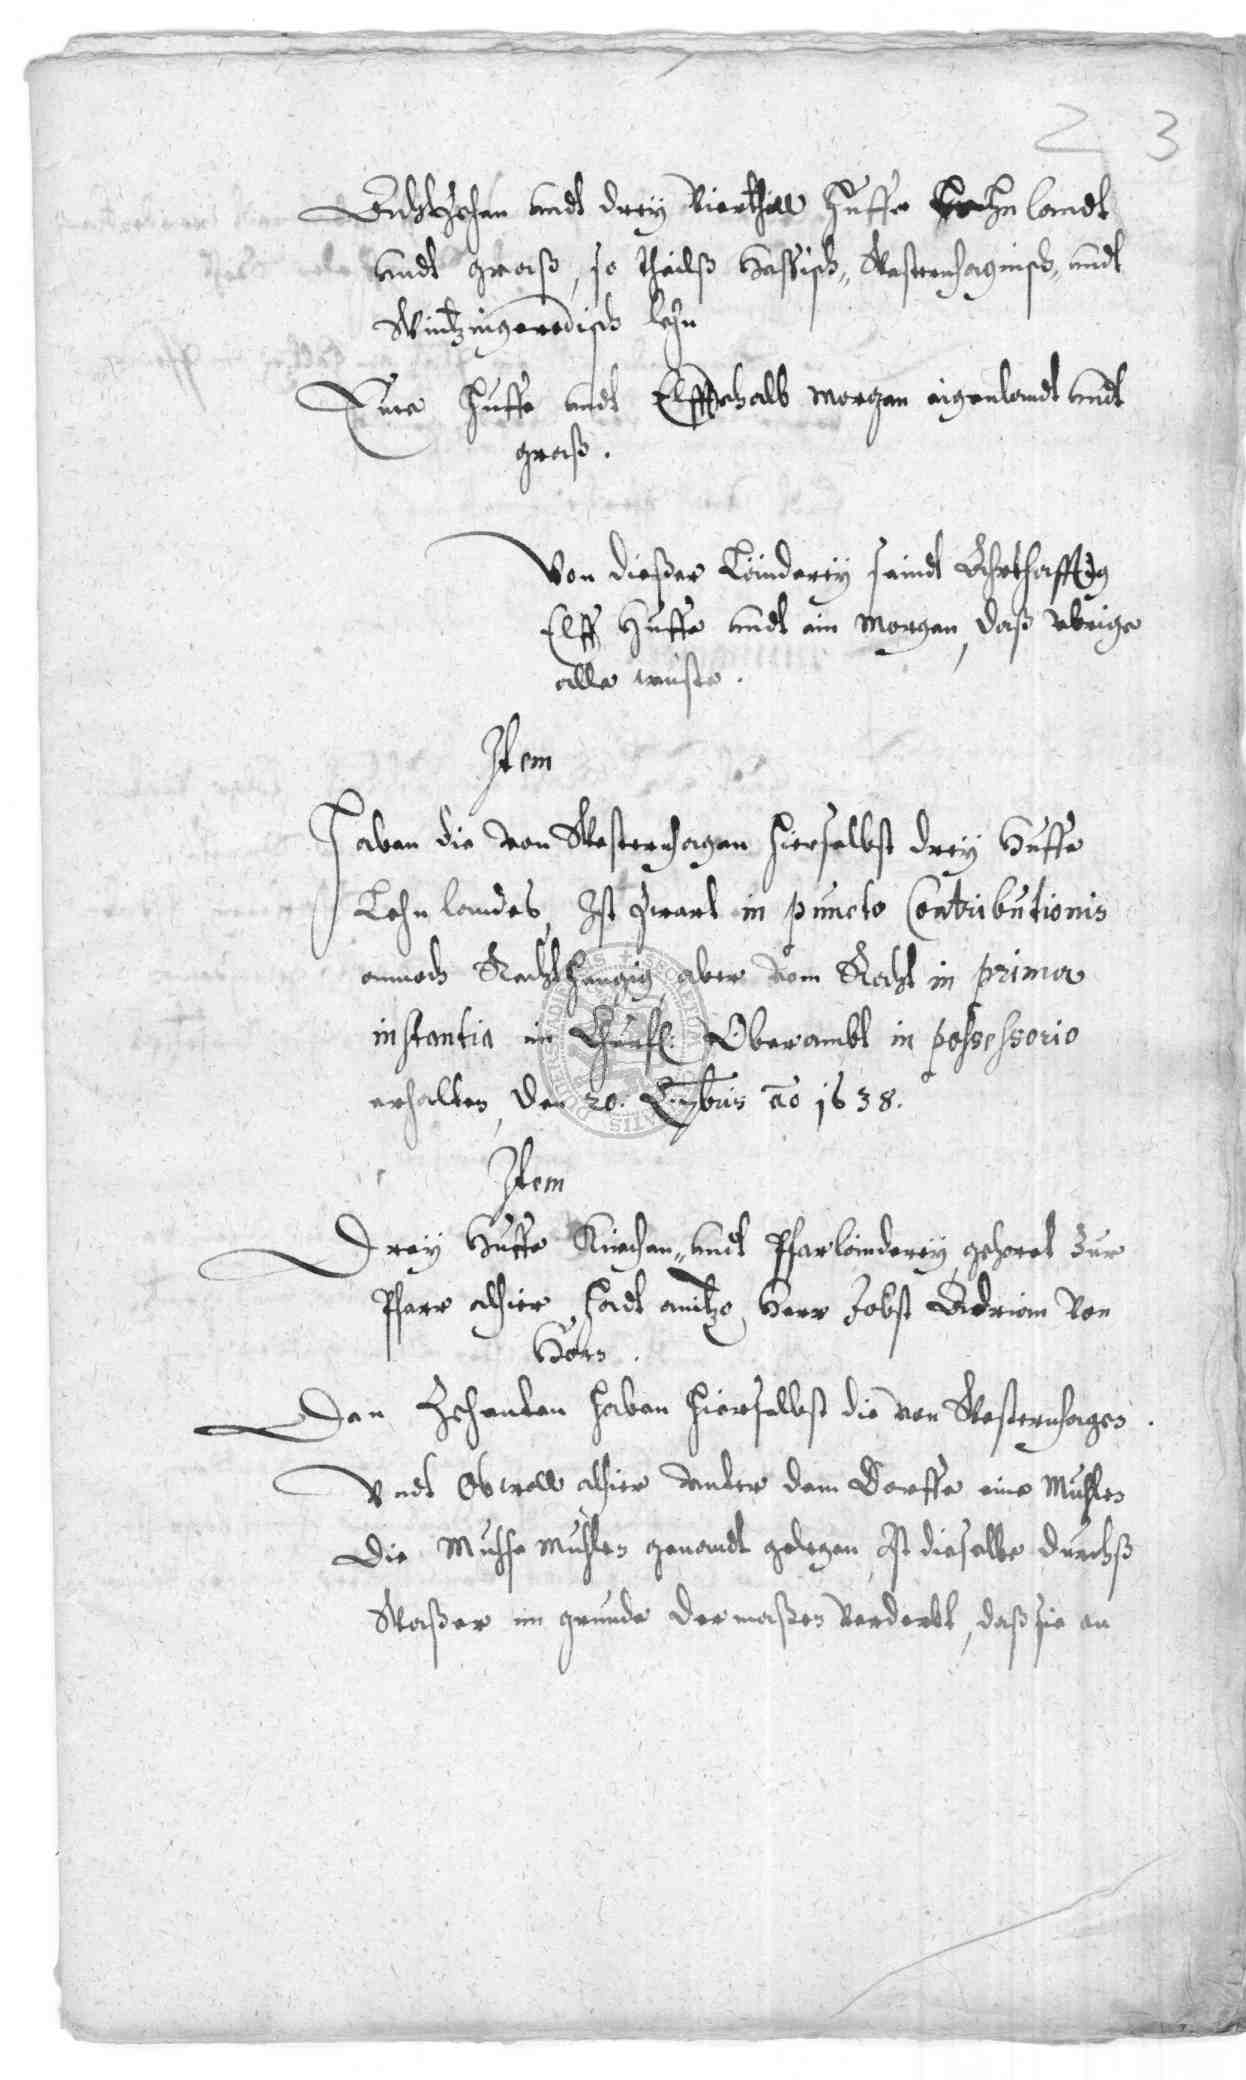 2 3
Achtzehen undt drey Vierthell Huffe Lehnlandt
undt graß, so theilß Hessisch„ Westernhagnisch„ undt
Wintzingerodisch lehn
Eine Huffe undt Elfftehalb Morgen eigenlandt undt
graß.
Von dießer Länderey seindt Ahrthafftig
Elff Huffe undt ein Morgen, daß ubrige
alle wuste.
Item
Haben die von Westernhagen hierselbst drey Huffe
Lehn landes, Ist zwart in puncto Contributionis
annoch Rechthengig, aber vom Recht in prima
instantia im Churfl. Oberambt in possessorio
erhalten, den 20. ao 1638.
Item
Drey Huffe Kirchen„ undt Pfarländerey gehoret zur
Pfarr alhier, hadt anitzo Herr Jobst Adrian Von
Horn.
Den Zehenten haben hierselbst die von Westernhagen.
Undt Ob woll alhier unter dem Dorffe eine Muhlen
die Muhlen genandt gelegen, Ist dieselbe durchß
Waßer im grunde dermaßen Verderbt, daß sie an